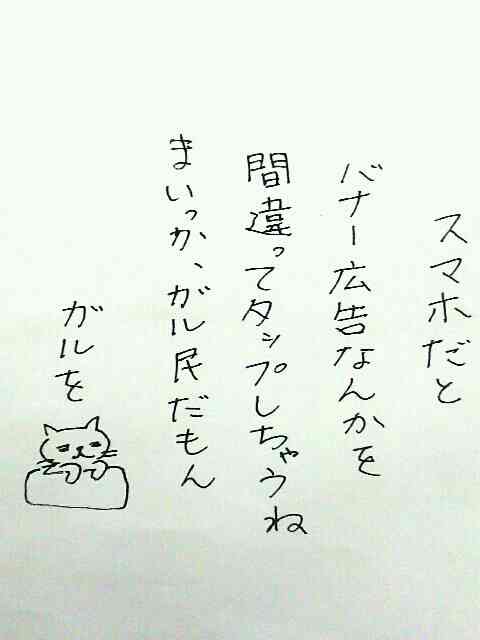 スマホだと
バナー広告なんかを
間違ってタップしちゃうね
まいっか、ガル民だもん
ガルを